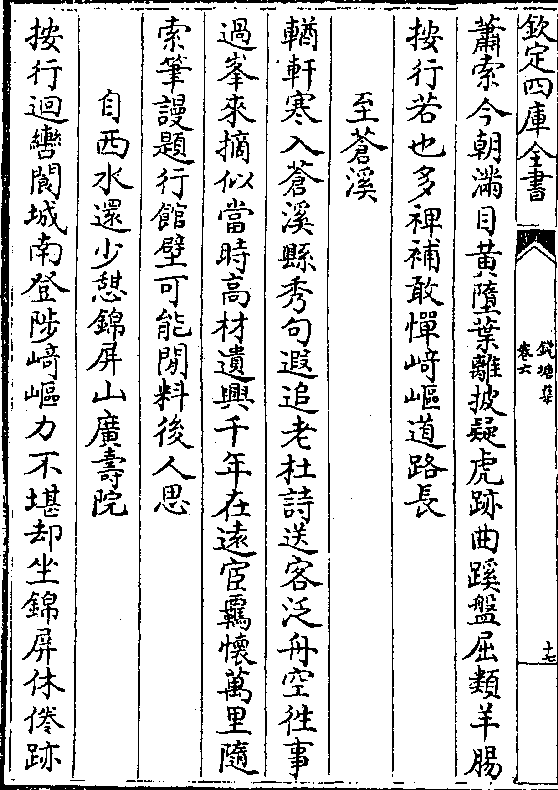 欽定四庫全書
錢塘集
卷六
十七
蕭索今朝滿目黄墮葉離披疑虎跡曲蹊盤屈類羊腸
按行若也多裨補敢憚﨑嶇道路長
至蒼溪
輶軒寒入蒼溪縣秀句遐追老杜詩送客泛舟空徃事
過峯來摘似當時高材遺興千年在遠宦羈懷萬里隨
索筆謾題行館壁可能閒料後人思
自西水還少憇錦屏山廣壽院
按行迴轡閬城南登陟﨑嶇力不堪却坐錦屏休倦跡